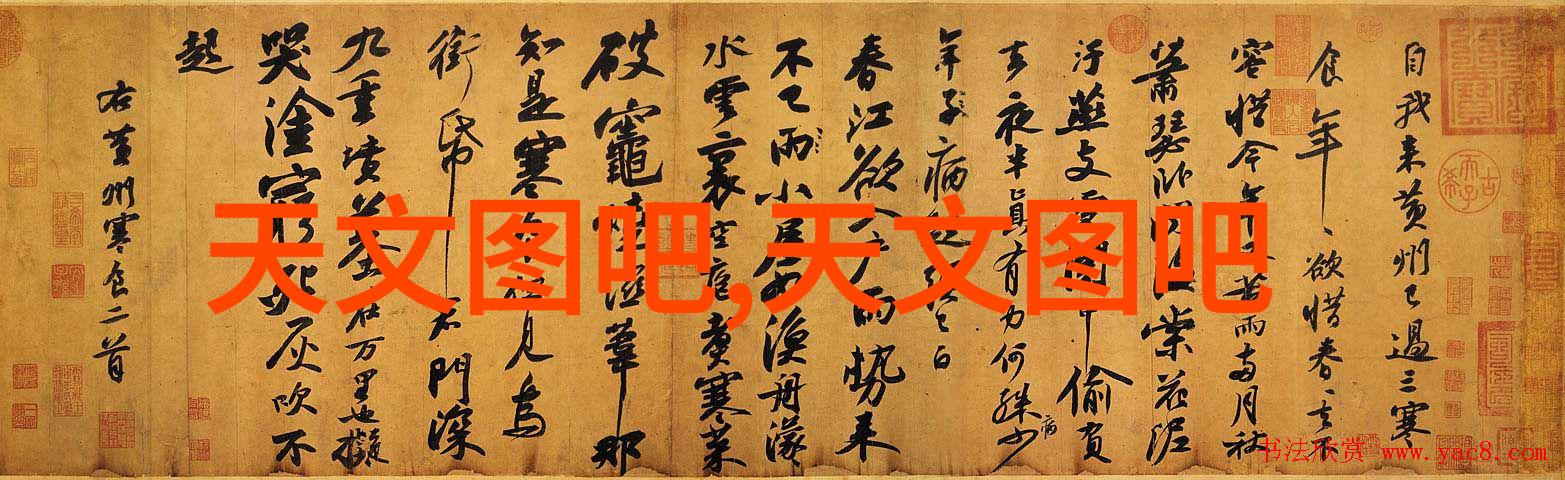 自我来黄州已過三寒
食年〻欲惜春〻去不
容惜今年又苦雨兩月秋
蕭瑟卧聞棠花泥
汙燕支中偷負
去夜半真有力何殊少
病
年子病起已白
春江欲入户雨勢来
不已雨小屋如漁舟濛
水雲裏空庖煮寒菜
破竈燒濕葦那
知是寒食但見烏
銜帋君門深
九重墳墓在万里也擬
哭塗窮死灰吹不
起
右黄州寒食二首
天文图吧,天文图吧
书法欣赏 www.yac8.com